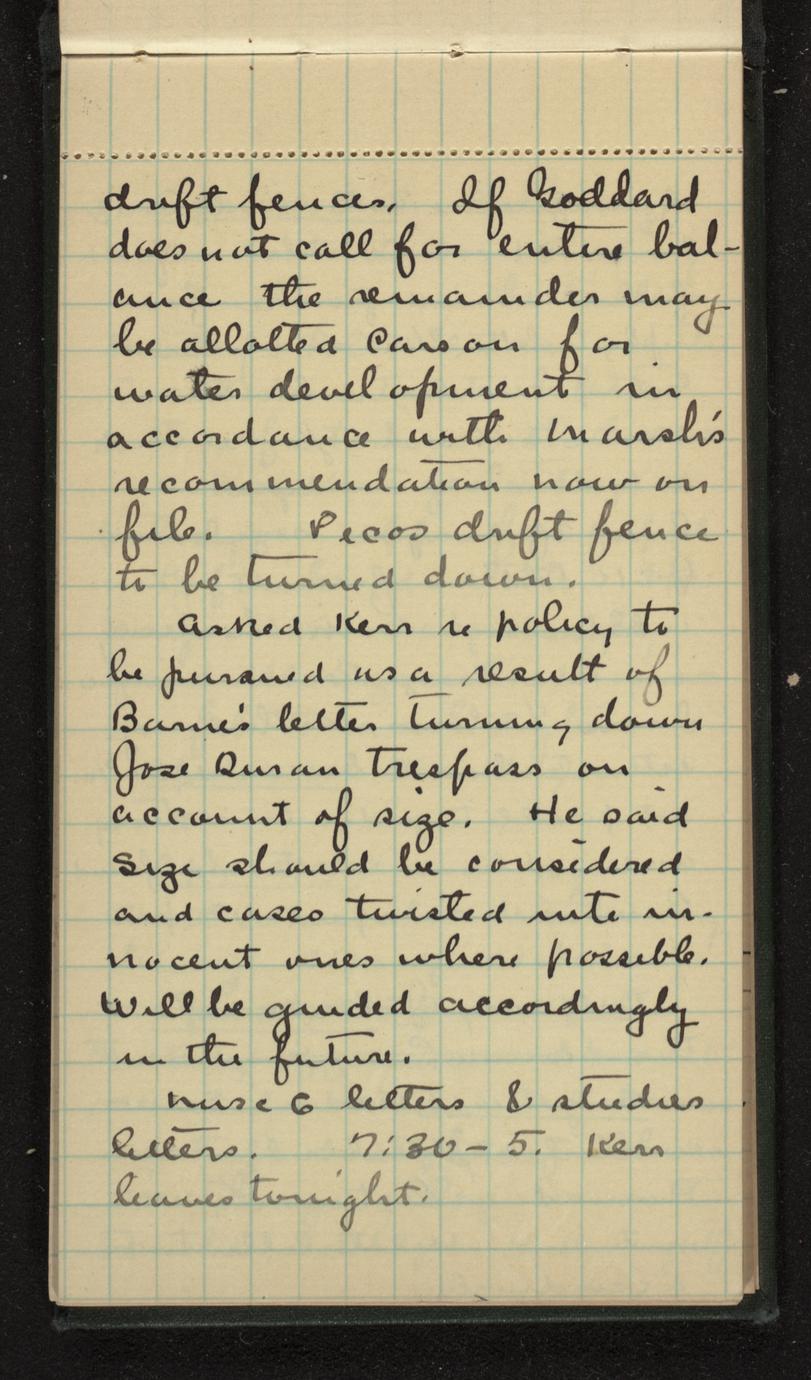 drift fences. If Goddard
does not call for entire bal-
ance the remainder may
be allotted Carson for
water development in
accordance with Marsh's
recommendation now on
file. Pecos drift fence
to be turned down.
Asked Kerr re policy to
be pursued as a result of
Barne's letter turning down
Jose Duran trespass on
account of size. He said
size should be considered
and cases twisted into in-
nocent ones where possible.
Will be guided accordingly
in the future.
Misc G letters & studies
letters. 7:30 - 5. Kerr
leaves tonight.